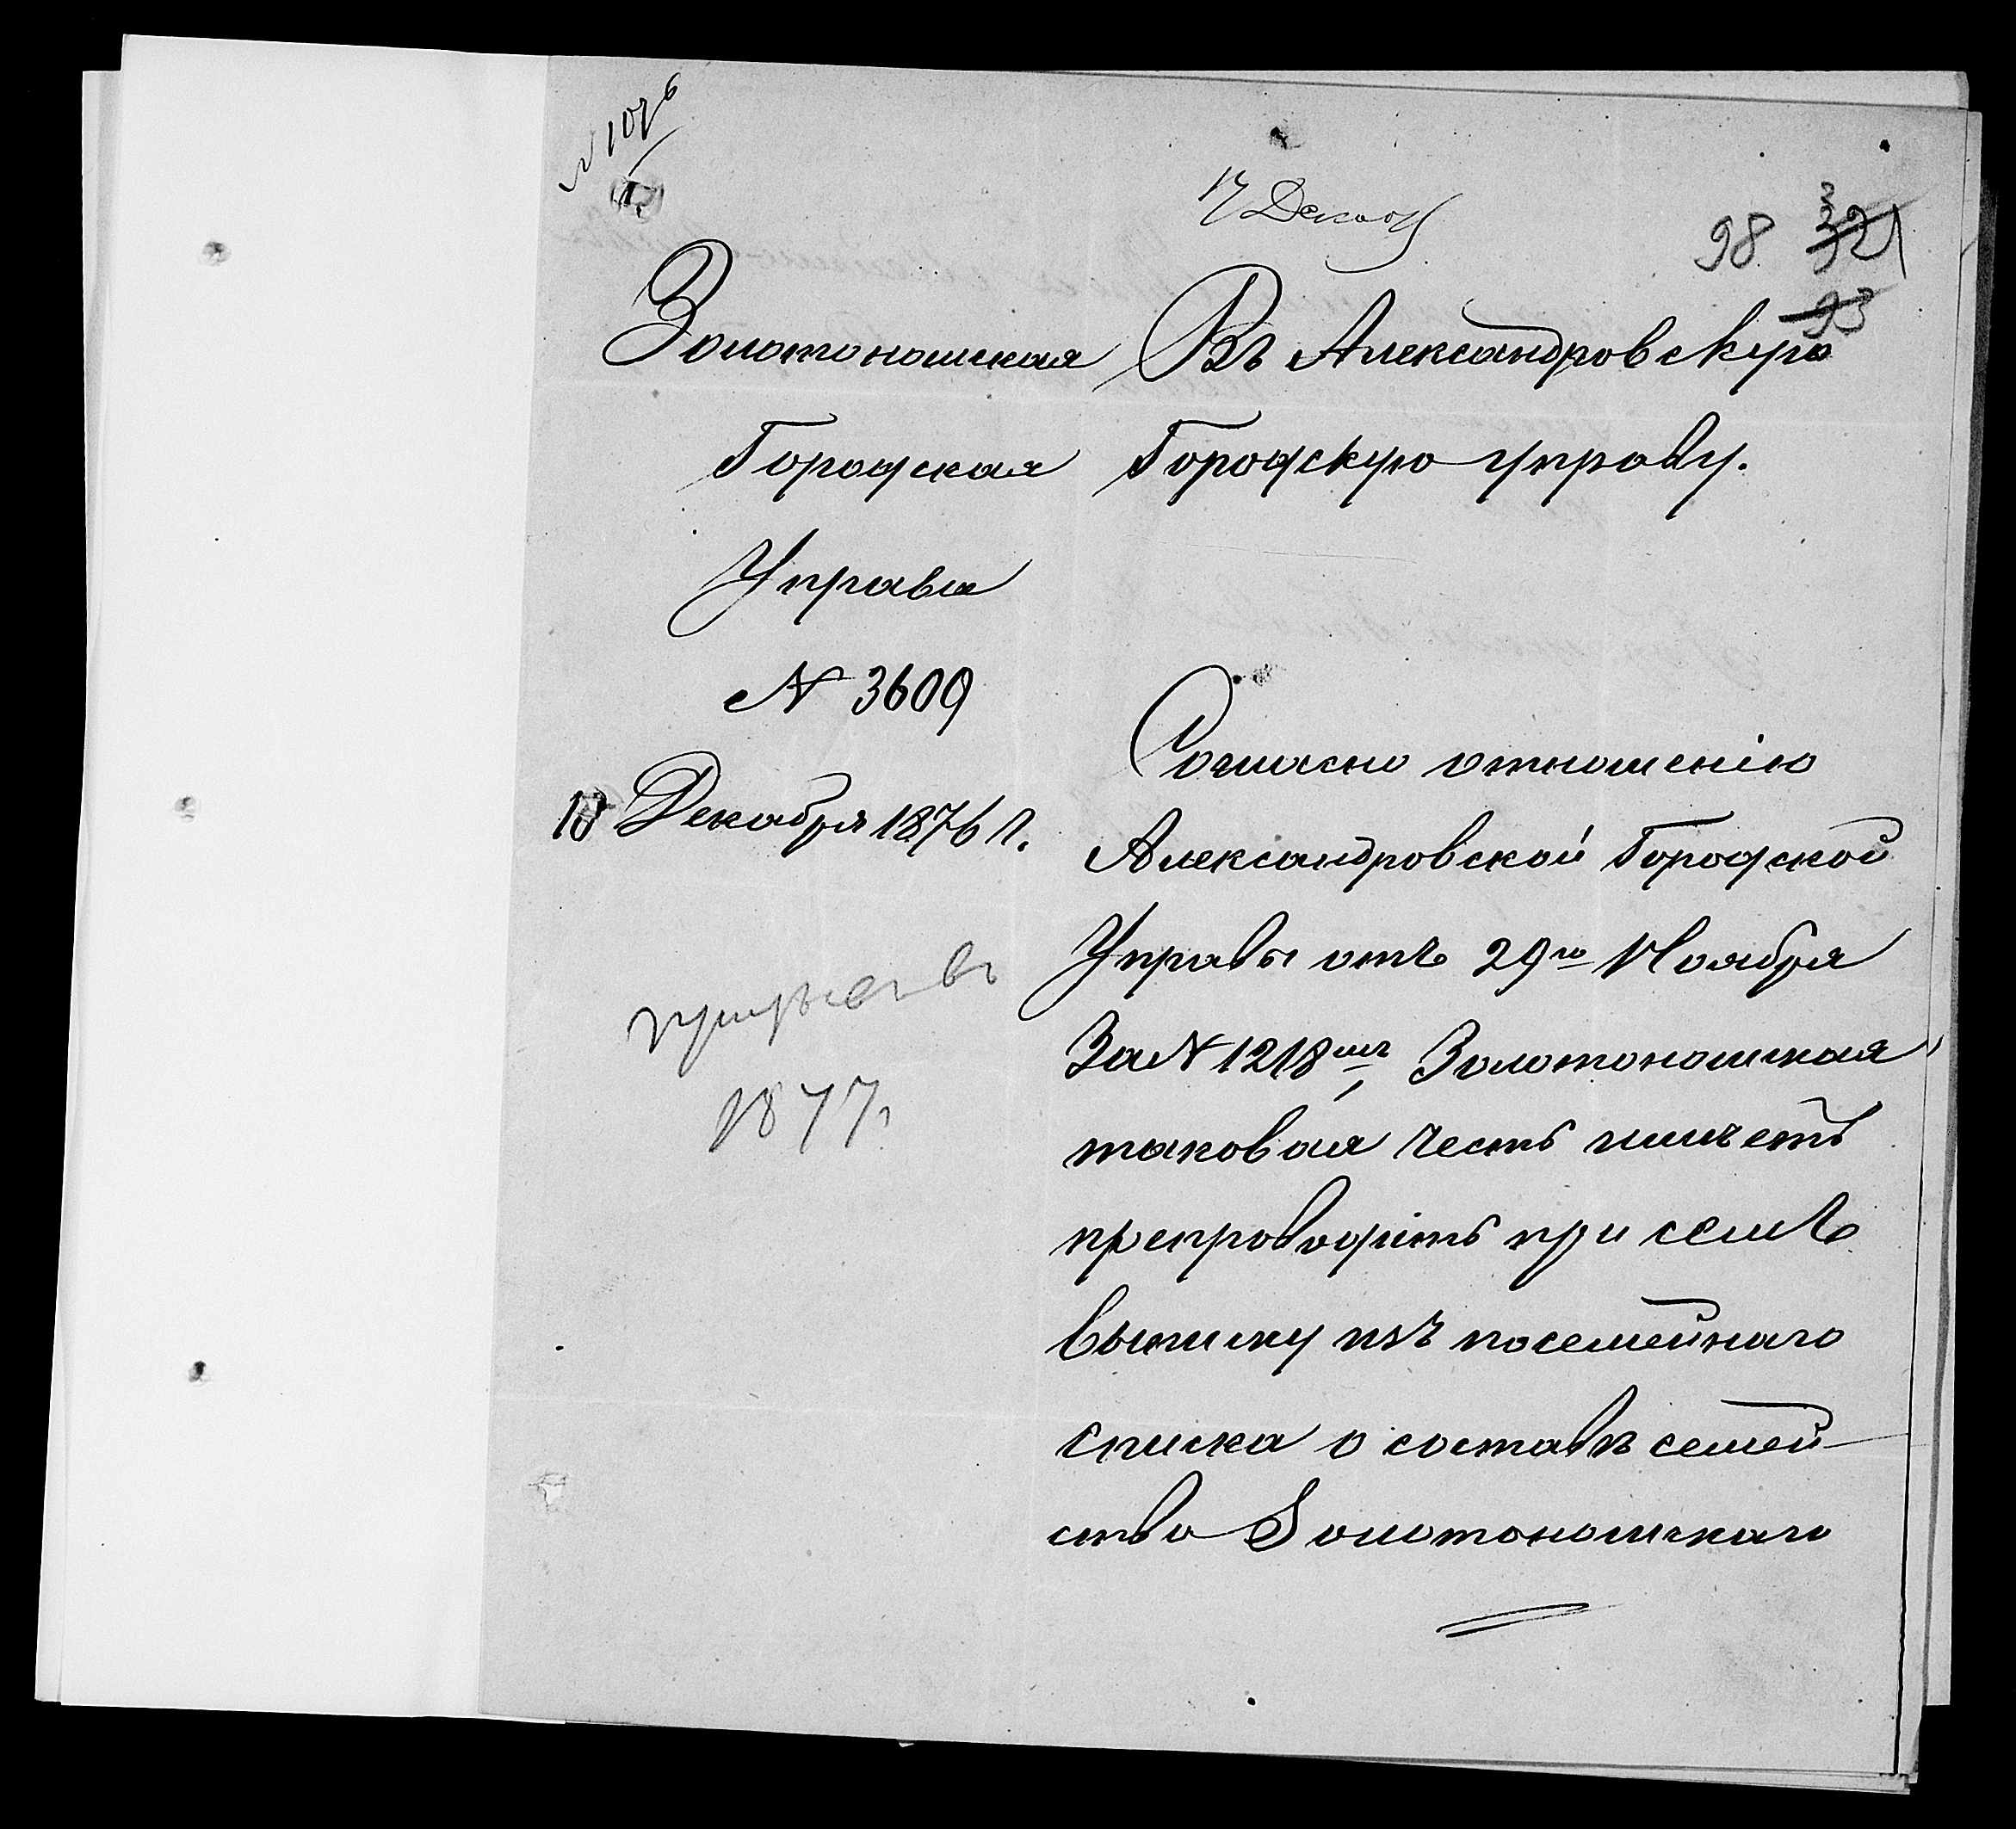 № 1076
17 Декаб
98 321
93
Золотоношская
Городская
Управа
№ 3609
18 Декабря 1876 г.
1877.
Въ Александровскую
Городскую управу.
Согласно отношенію
Александровской Городской
Управы отъ 29го Ноября
За № 1218мъ, Золотоношская
таковая честь имѣетъ
препроводить при семъ
выписку изъ посемейнаго
списка о составѣ семей-
ства Золотоношскаго